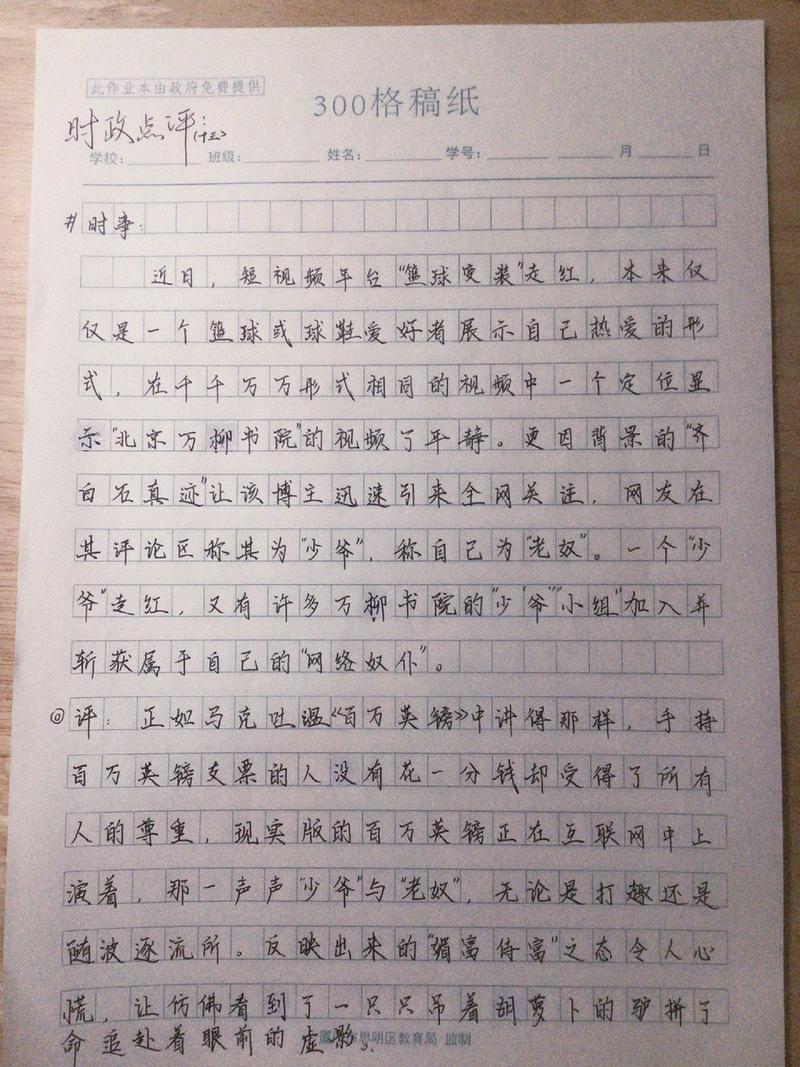 此作业本由政府免费提供
300格稿纸
时政点评：(十三)
学校： 班级： 姓名： 学号： 月 日
#时事：
近日，短视频平台“篮球变装”走红，本来仅
仅是一个篮球或球鞋爱好者展示自己热爱的形
式，在千千万万形式相同的视频中一个定位显
示“北京万柳书院”的视频了平静。更因背景的“齐
白石真迹”让该博主迅速引来全网关注，网友在
其评论区称其为“少爷”，称自己为“老奴”。一个“少
爷”走红，又有许多万柳书院的“少爷”“小组”加入并
斩获属于自己的“网络奴仆”。
◎评：正如马克吐温《百万英镑》中讲得那样，手持
百万英镑支票的人没有花一分钱却受得了所有
人的尊重，现实版的百万英镑正在互联网中上
演着，那一声声“少爷”与“老奴”，无论是打趣还是
随波逐流所。反映出来的“媚富侍富”之态令人心
慌，让仿佛看到了一只只吊着胡萝卜的驴拼了
命追赴着眼前的虚影。
思明区教育局 监制